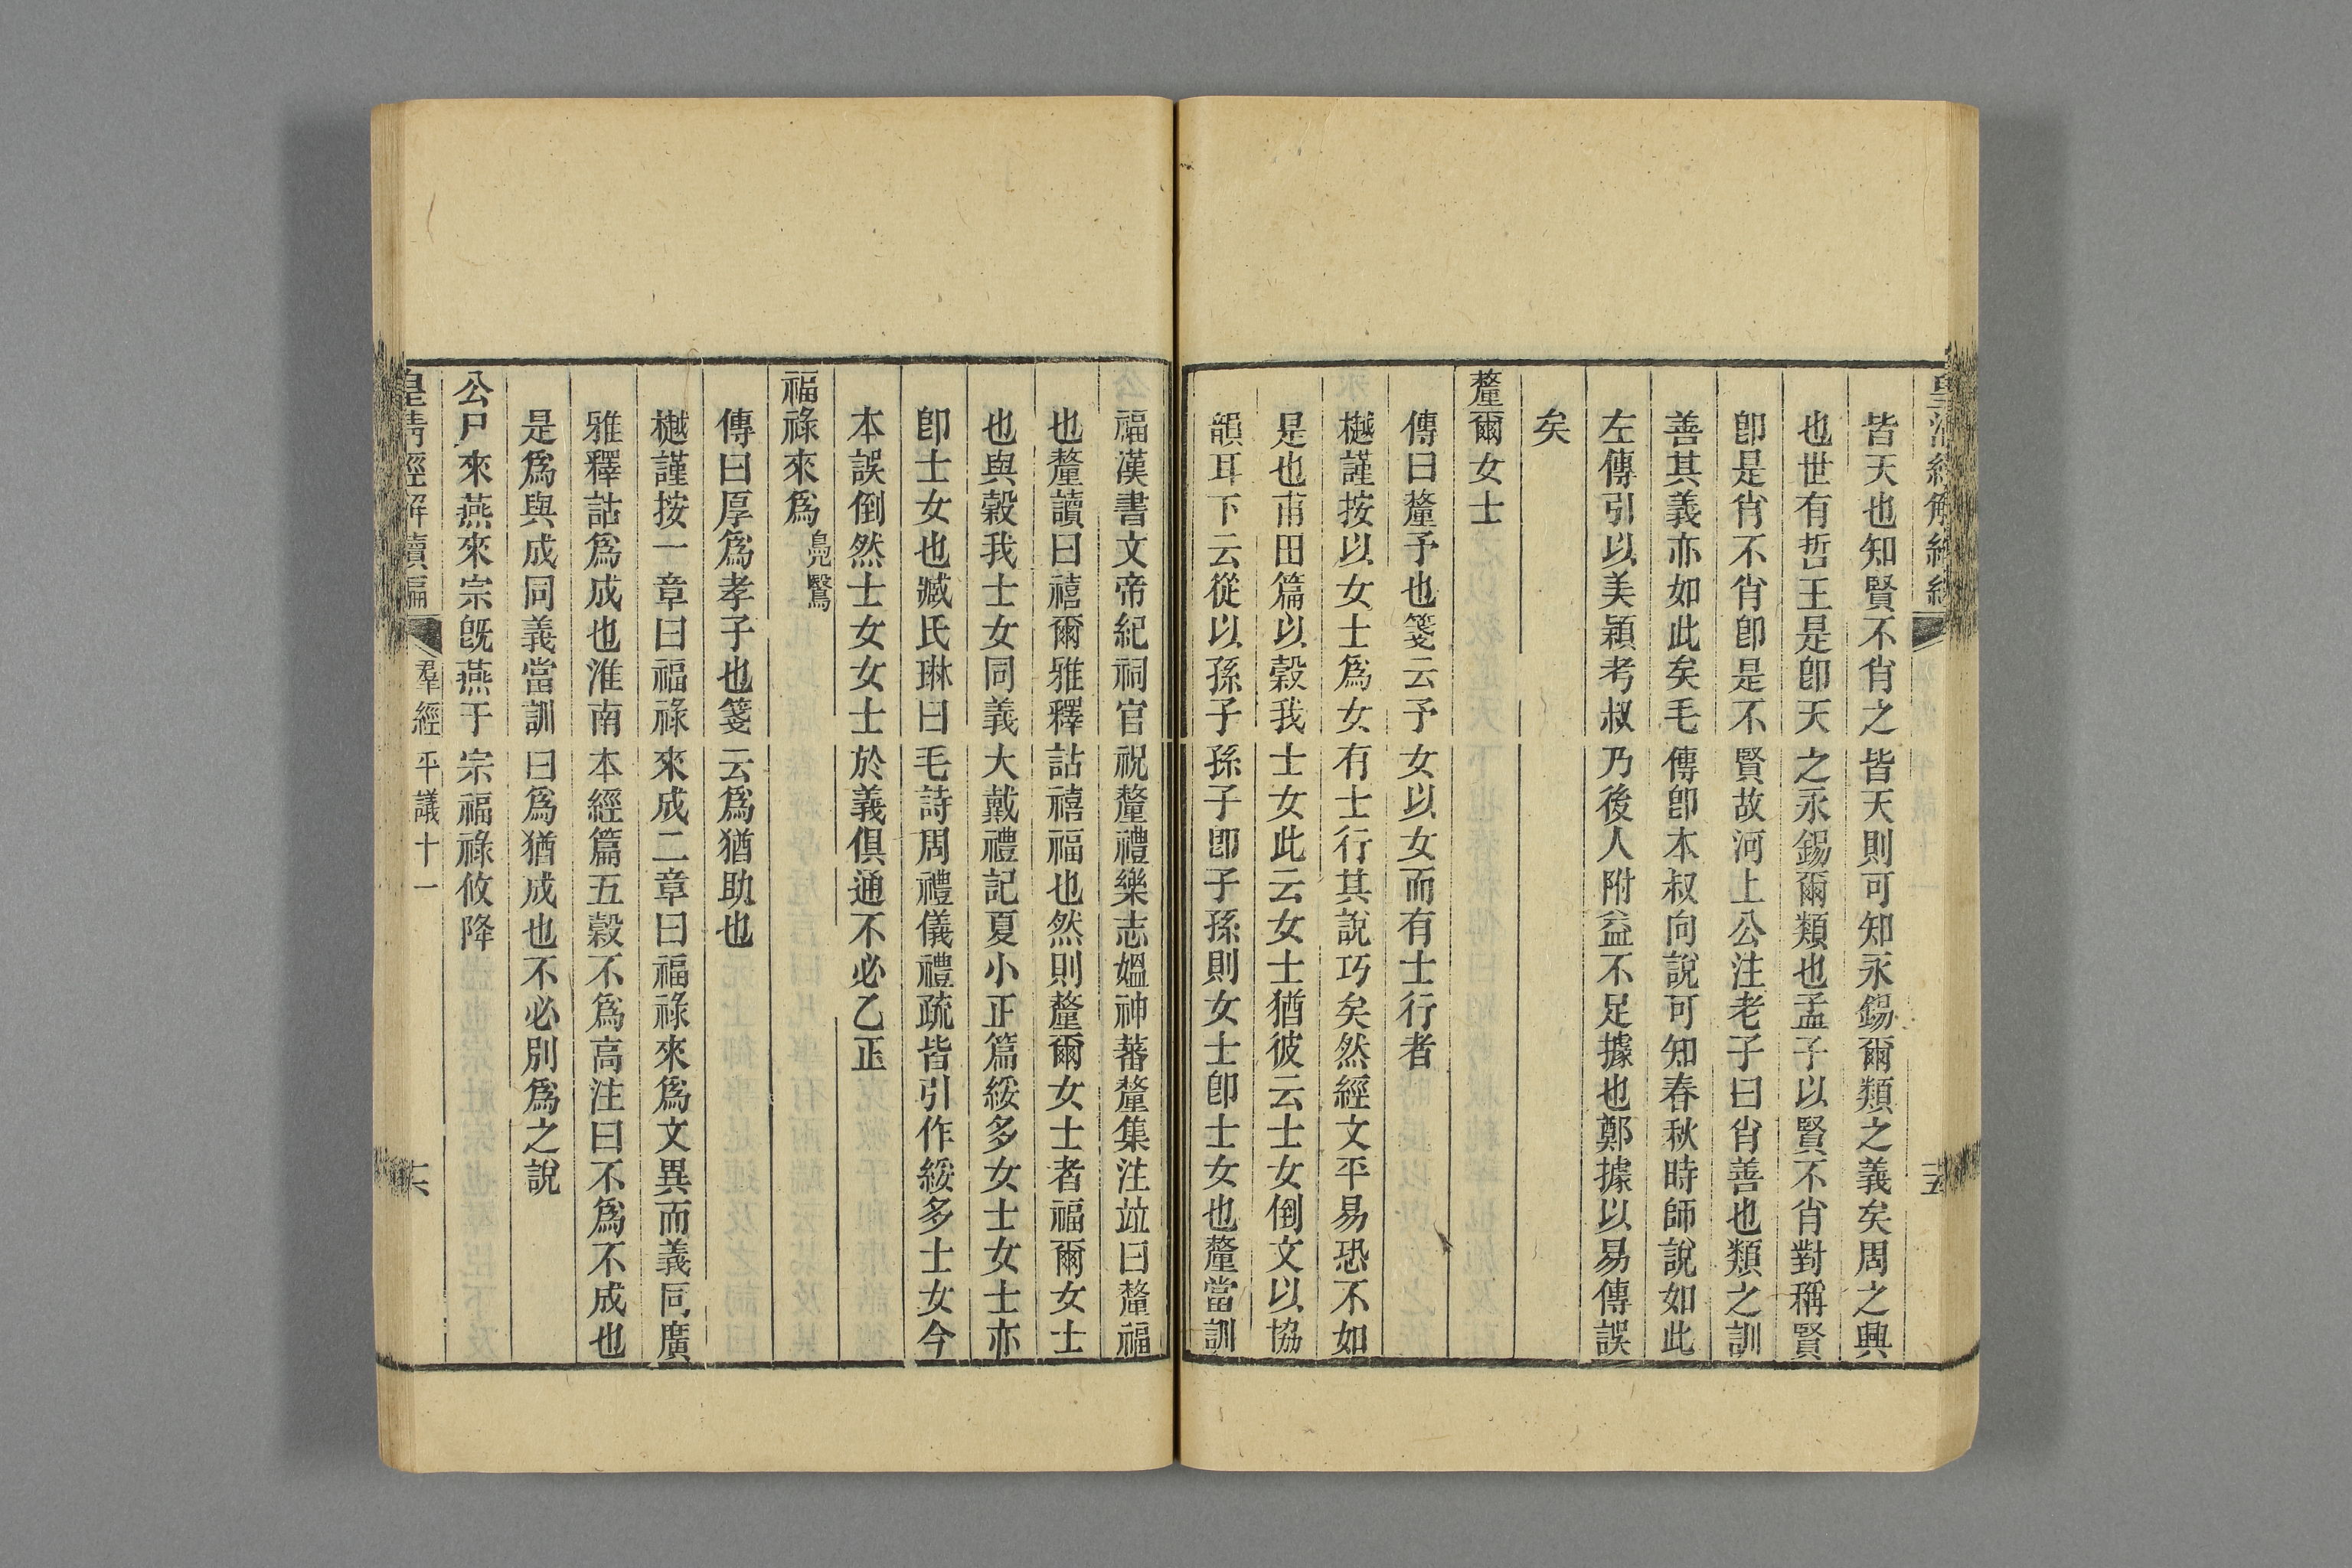 皆天也知賢不肖之皆天則可知永錫爾類之義矣周之興
也世有哲王是卽天之永錫爾類也孟子以賢不肖對稱賢
卽是肖不肖卽是不賢故河上公注老子曰肖善也類之訓
善其義亦如此矣毛傳卽本叔向說可知春秋時師說如此
左傳引以美穎考叔乃後人附益不足據也鄭據以易傳誤
矣
釐爾女士
傳曰釐予也箋云予女以女而有士行者
樾謹按以女士爲女有士行其說巧矣然經文平易恐不如
是也甫田篇以穀我士女此云女士猶彼云士女倒文以協
韻耳下云從以孫子孫子卽子孫則女士卽士女也釐當訓
福漢書文帝紀祠官祝釐禮樂志媼神蕃釐集注竝曰釐福
也釐讀曰禧爾雅釋詁禧福也然則釐爾女士者福爾女士
也與穀我士女同義大戴禮記夏小正篇綏多女士女士亦
卽士女也臧氏琳曰毛詩周禮儀禮疏皆引作綏多士女今
本誤倒然士女女士於義俱通不必乙正
福祿來爲 鳧鷖
傳曰厚爲孝子也箋云爲猶助也
樾謹按一章曰福祿來成二章曰福祿來爲文異而義同廣
雅釋詁爲成也淮南本經篇五穀不爲高注曰不爲不成也
是爲與成同義當訓曰爲猶成也不必別爲之說
公尸來燕來宗旣燕于宗福祿攸降
皇清經解續編 羣經平議十一 六